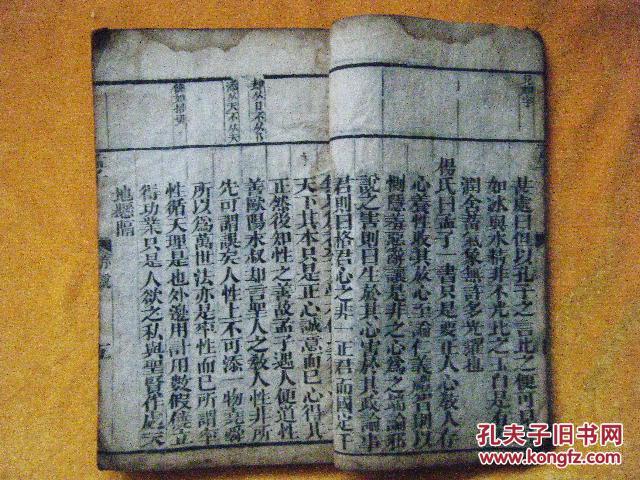 甚處曰但以孔子之言比之便可見
如冰與水精非不光比之玉自是有
潤含蓄氣象無許多光耀也
楊氏曰孟子一書只是要正人心教人存
心養性收其放心至論仁義禮智則以
惻隱羞惡辭讓是非之心為之端論邪
說之害則曰生於其心害於其政論事
君則曰格君心之非一正君而國定千
天下其本只是正心誠意而已心得其
正然後知性之善故孟子遇人便道性
善歐陽永叔却言聖人之教人性非所
先可謂誤矣人性上不可添一物堯舜
所以為萬世法亦是率性而已所謂率
性循天理是也外邊用計用數假饒立
得功業只是人欲之私與聖賢作處天
地懸隔
孔夫子旧书网